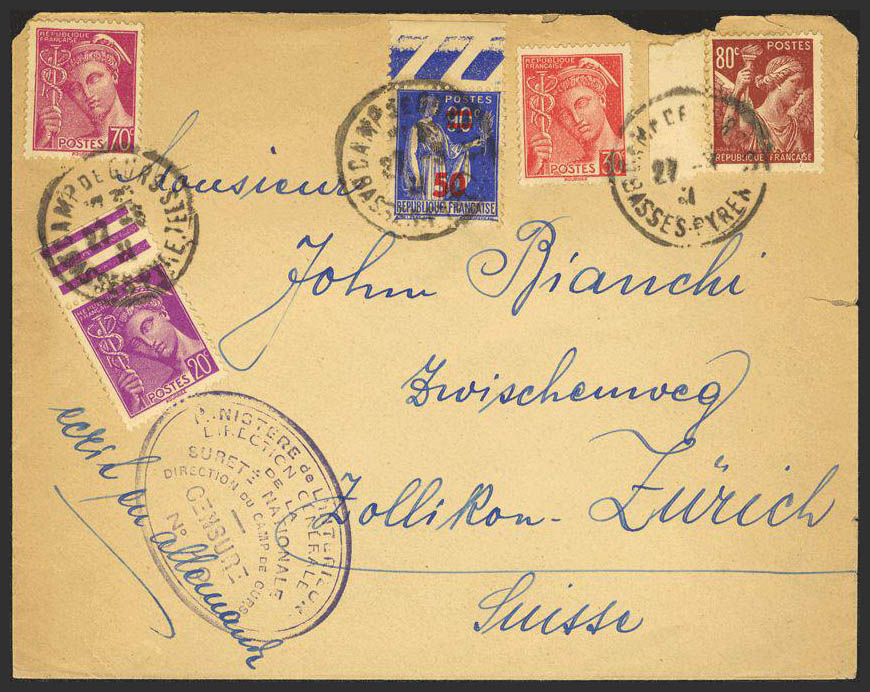 RÉPUBLIQUE
FRANÇAISE
70c
POSTES
POSTES
90c
50
RÉPUBLIQUE FRANÇAISE
RÉPUBLIQUE
FRANÇAISE
30c
POSTES
80c
POSTES
RÉPUBLIQUE FRANÇAISE
CAMP DE GURS
BASSES-PYRENEES
CAMP DE
BASSES
CAMP DE
27
BASSES-PYREN
RÉPUBLIQUE
FRANÇAISE
20c
POSTES
Monsieur
John Bianchi
Zwischenweg
Zollikon - Zürich
Suisse
ecrit en allemand
MINISTERE de L'INTERIEUR
DIRECTION GÉNÉRALE
DE LA
SURETÉ NATIONALE
DIRECTION DU CAMP DE GURS
CENSURE
No